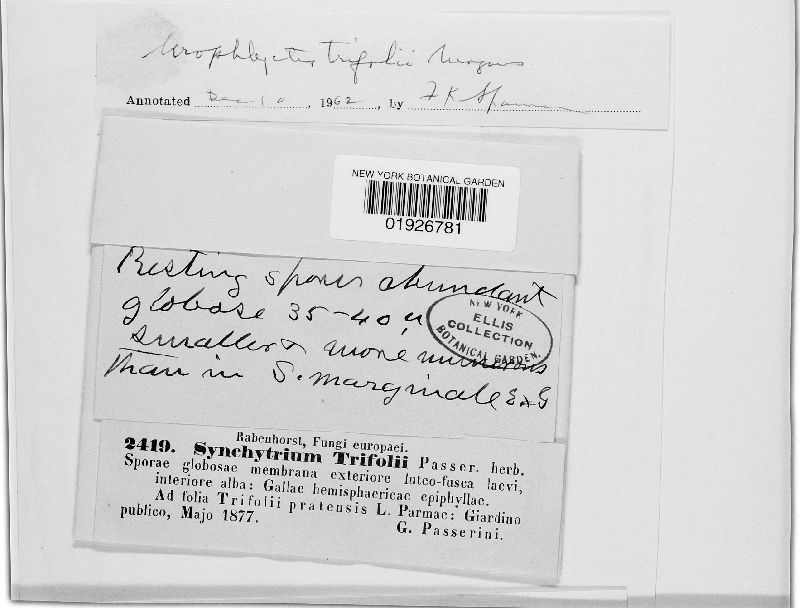 Urophlyctis trifolii Magnus
Annotated Dec 10, 1962, by F K Sparrow
NEW YORK BOTANICAL GARDEN
01926781
Resting spores abundant
globose 35-40 u
smaller & more numerous
than in S. marginale E & G
NEW YORK
ELLIS
COLLECTION
BOTANICAL GARDEN.
Rabenhorst, Fungi europaei.
2419. Synchytrium Trifolii Passer. herb.
Sporae globosae membrana exteriore luteo-fusca laevi,
interiore alba: Gallae hemisphaericae epiphyllae.
Ad folia Trifolii pratensis L. Parmae: Giardino
publico, Majo 1877.
G. Passerini.